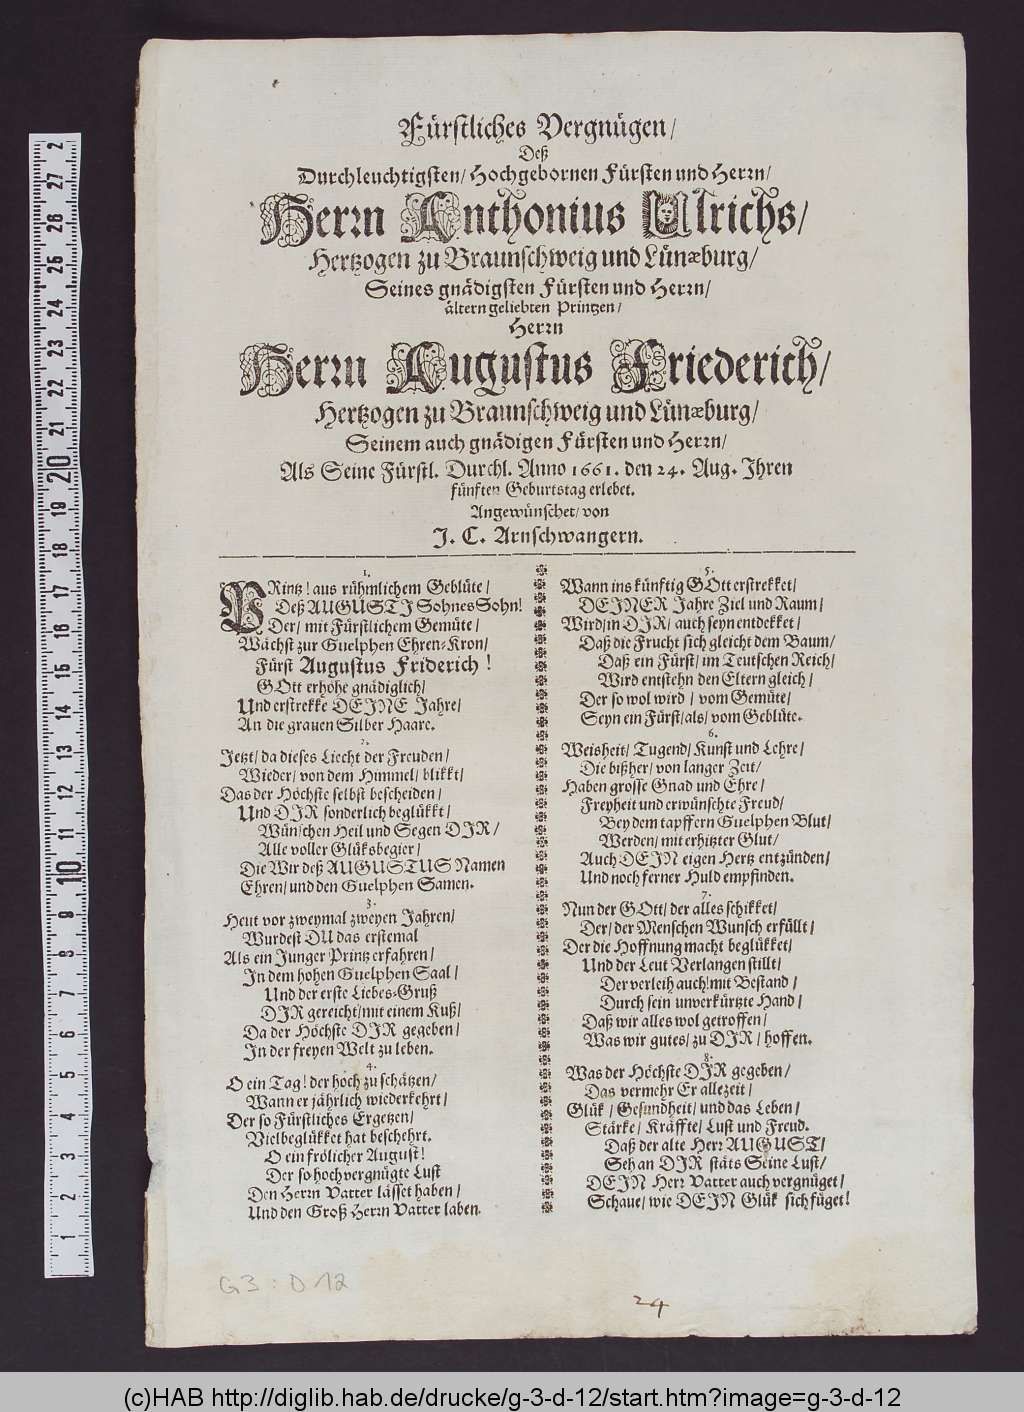 Fürstliches Vergnügen/
Deß
Durchleuchtigsten/ Hochgebornen Fürsten und Herrn/
Herrn Anthonius Ulrichs/
Hertzogen zu Braunschweig und Lünæburg/
Seines gnädigsten Fürsten und Herrn/
ältern geliebten Printzen/
Herrn
Herrn Augustus Friederich/
Hertzogen zu Braunschweig und Lünæburg/
Seinem auch gnädigen Fürsten und Herrn/
Als Seine Fürstl. Durchl. Anno 1661. den 24. Aug. Ihren
fünften Geburtstag erlebet.
Angewünschet/ von
J. C. Arnschwangern.
1.
PRintz! aus rühmlichem Geblüte/
Deß AUGUSTJ Sohnes Sohn!
Der/ mit Fürstlichem Gemüte/
Wächst zur Guelphen Ehren-Kron/
Fürst Augustus Friderich!
GOtt erhöhe gnädiglich/
Und erstrekke DEJNE Jahre/
An die grauen Silber Haare.
2.
Jetzt/ da dieses Liecht der Freuden/
Wieder/ von dem Himmel/ blikkt/
Das der Höchste selbst bescheiden/
Und DJR sonderlich beglükkt/
Wünschen Heil und Segen DJR/
Alle voller Glüksbegier/
Die Wir deß AUGUSTUS Namen
Ehren/ und den Guelphen Samen.
3.
Heut vor zweymal zweyen Jahren/
Wurdest DU das erstemal
Als ein Junger Printz erfahren/
In dem hohen Guelphen Saal/
Und der erste Liebes-Gruß
DJR gereicht/ mit einem Kuß/
Da der Höchste DJR gegeben/
In der freyen Welt zu leben.
4.
O ein Tag! der hoch zu schätzen/
Wann er jährlich wiederkehrt/
Der so Fürstliches Ergetzen/
Vielbeglükket hat beschehrt.
O ein frölicher August!
Der so hoch vergnügte Lust
Den Herrn Vatter lässet haben/
Und den Groß Herrn Vatter laben.
5.
Wann ins künftig GOtt erstrekket/
DEJNER Jahre Ziel und Raum/
Wird/ in DJR/ auch seyn entdekket/
Daß die Frucht sich gleicht dem Baum/
Daß ein Fürst/ im Teutschen Reich/
Wird entstehn den Eltern gleich/
Der so wol wird/ vom Gemüte/
Seyn ein Fürst/ als/ vom Geblüte.
6.
Weisheit/ Tugend/ Kunst und Lehre/
Die bißher/ von langer Zeit/
Haben grosse Gnad und Ehre/
Freyheit und erwünschte Freud/
Bey dem tapffern Guelphen Blut/
Werden/ mit erhitzter Glut/
Auch DEJN eigen Hertz entzünden/
Und noch ferner Huld empfinden.
7.
Nun der GOtt/ der alles schikket/
Der/ der Menschen Wunsch erfüllt/
Der die Hoffnung macht beglükket/
Und der Leut Verlangen stillt/
Der verleih auch! mit Bestand/
Durch sein unverkürtzte Hand/
Daß wir alles wol getroffen/
Was wir gutes/ zu DJR/ hoffen.
8.
Was der Höchste DJR gegeben/
Das vermehr Er allezeit/
Glük/ Gesundheit/ und das Leben/
Stärke/ Kräffte/ Lust und Freud.
Daß der alte Herr AUGUST/
Seh an DJR stäts Seine Lust/
DEJN Herr Vatter auch vergnüget/
Schaue/ wie DEJN Glük sich füget!
G3 : D 12
24
(c)HAB http://diglib.hab.de/drucke/g-3-d-12/start.htm?image=g-3-d-12